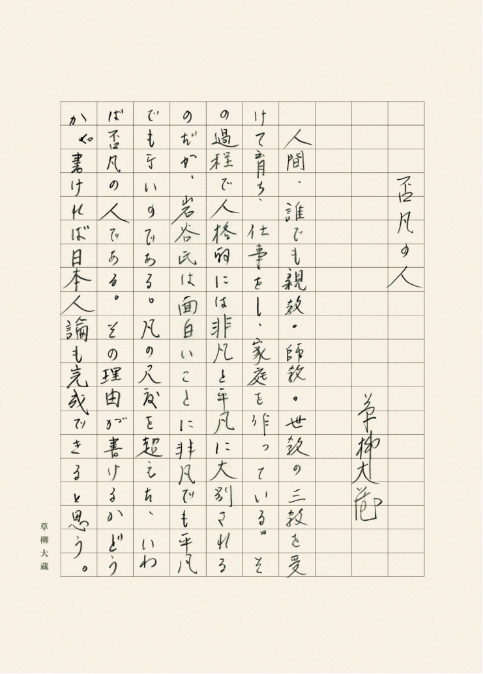 否凡の人
草柳大蔵
人間、誰でも親教。師教。世教の三教を受
けて育ち、仕事をし、家庭を作っている。そ
の過程で人格的には非凡と平凡に大別される
のだが、岩谷氏は面白いことに非凡でも平凡
でもないのである。凡の尺度を超えた、いわ
ば否凡の人である。その理由が書けるかどう
か。書ければ日本人論も完成できると思う。
草柳大蔵